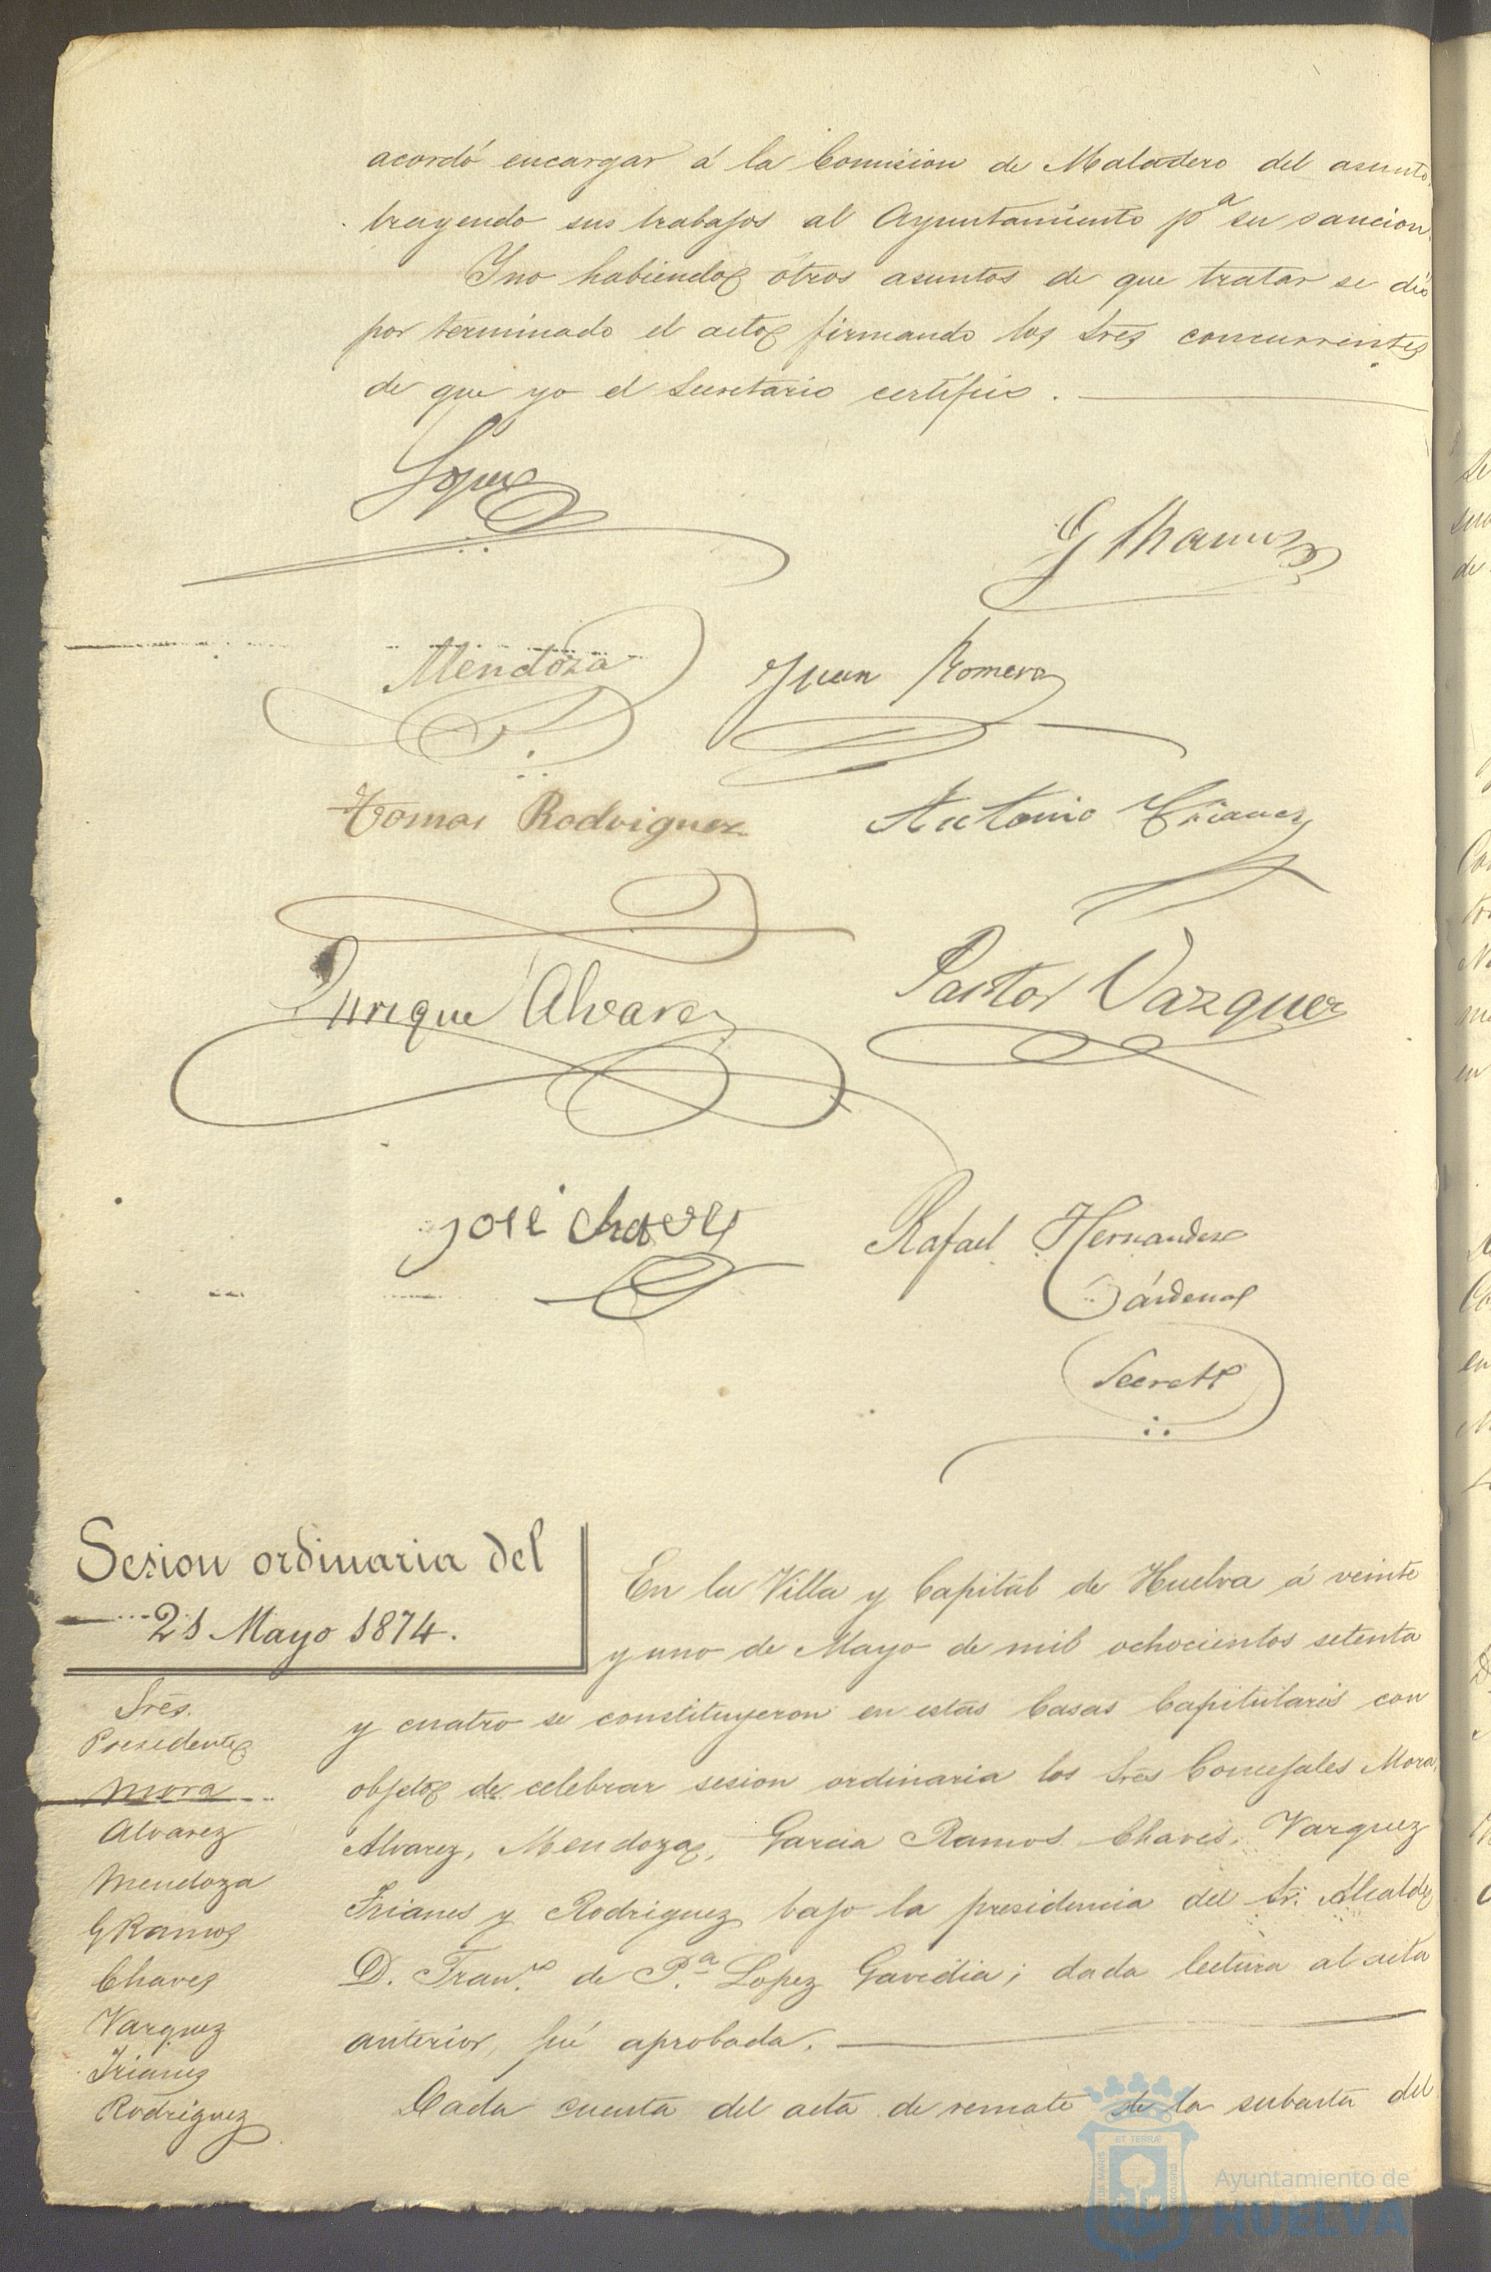 acordó encargar á la Comision de Matadero del asunto,
trayendo sus trabajos al Ayuntamiento pª su sancion.
Y no habiendo otros asuntos de que tratar se dió
por terminado el acto firmando los Sres concurrentes
de que yo el Secretario certifico.
Lopez
G Ramos
Mendoza
Juan Romero
Tomas Rodriguez
Antonio Trianes
Enrique Alvarez
Pastor Vazquez
José Chaves
Rafael Hernandez
Cárdenas
Secretº
Sesion ordinaria del
21 Mayo 1874.
Sres.
Presidente
Mora
Alvarez
Mendoza
G Ramos
Chaves
Vazquez
Trianes
Rodriguez
En la Villa y Capital de Huelva á veinte
y uno de Mayo de mil ochocientos setenta
y cuatro se constituyeron en estas Casas Capitulares con
objeto de celebrar sesion ordinaria los Sres Concejales Mora,
Alvarez, Mendoza, Garcia Ramos Chaves, Vazquez
Trianes y Rodriguez bajo la presidencia del Sr. Alcalde
D. Franco. de P.ª Lopez Gavidia; dada lectura al acta
anterior, fué aprobada.
Dada cuenta del acta de remate de la subasta del
Ayuntamiento de
HUELVA